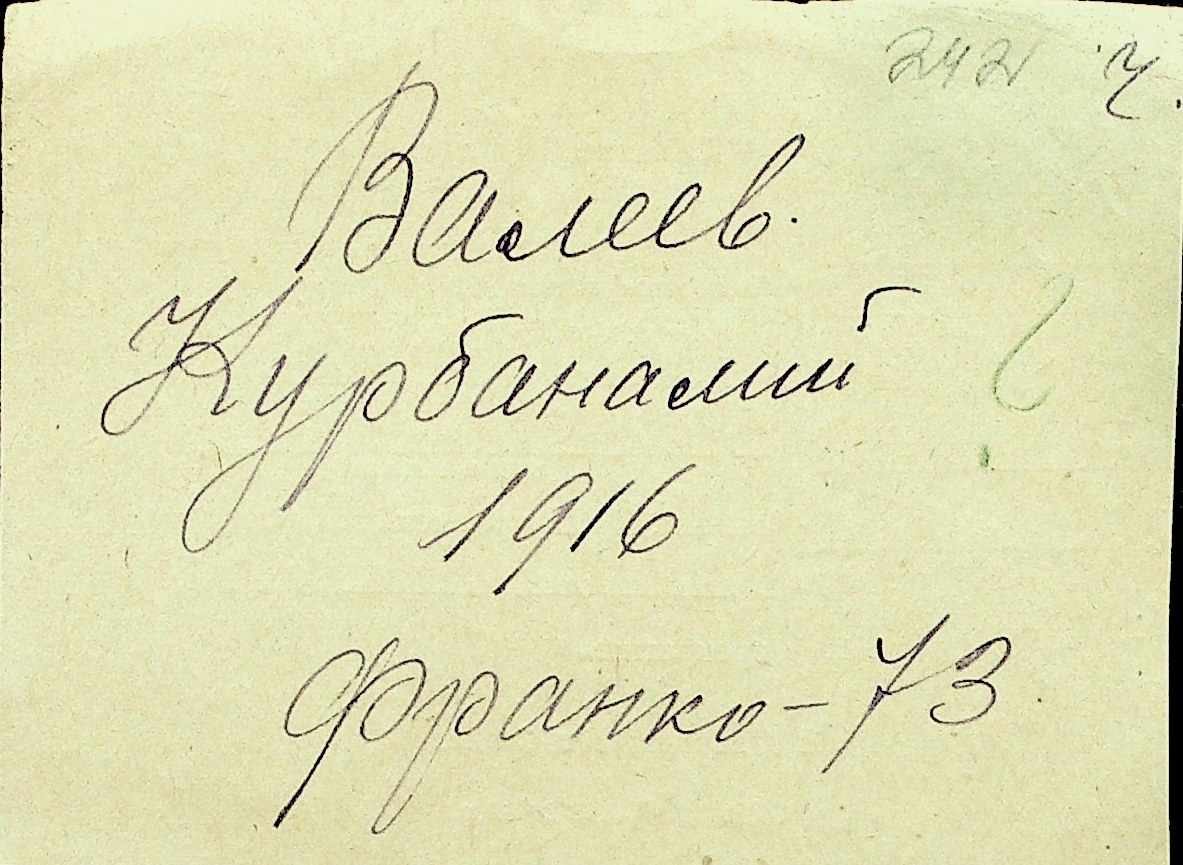 242 ч.
Валеев.
Курбаналий
1916
Франко-73